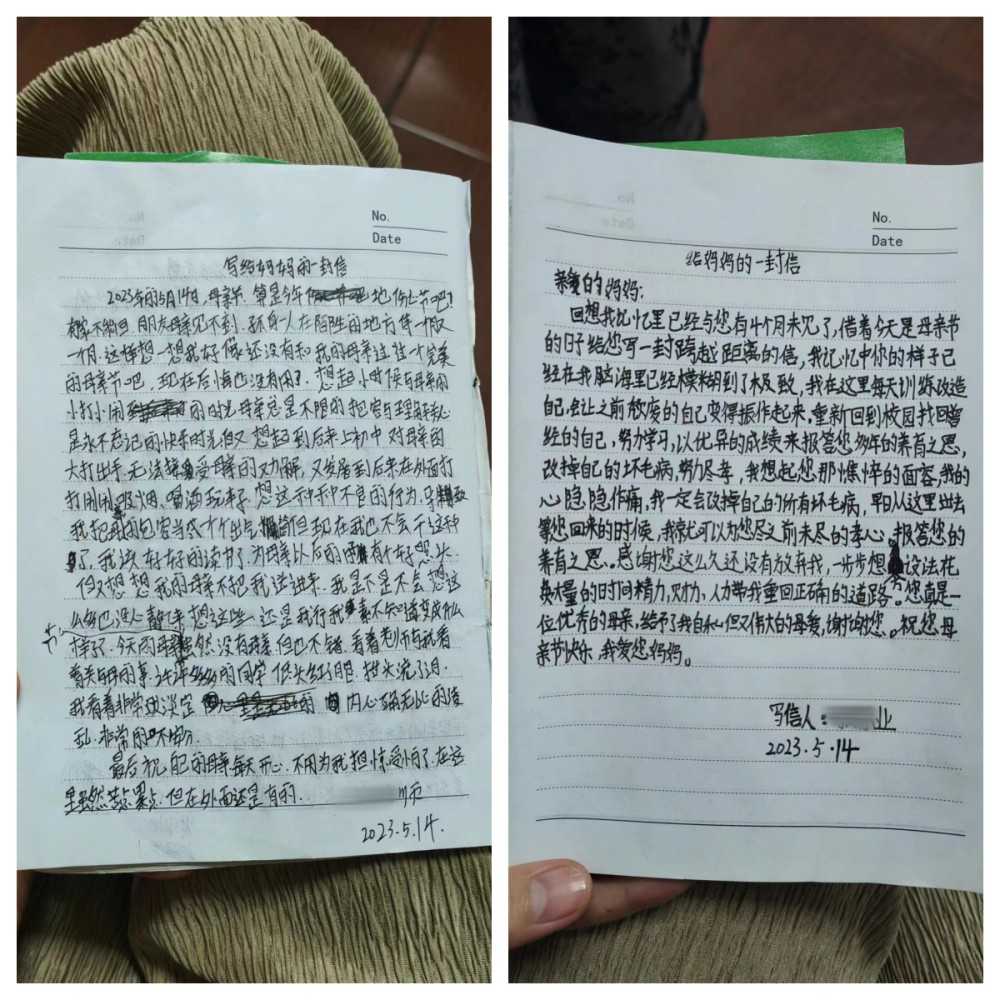 No.
Date
写给妈妈的一封信
2023年的5月14日,母亲节.算是今年 地 伤心节吧!
有家不能回.朋友母亲见不到.孤身一人在陌生的地方待一个又
一个月.这样想一想我好像还没有和我的母亲过过一个完美
的母亲节吧,现在后悔也没有用?.想起小时候与母亲的
小打小闹 的时光母亲总是不限的包容与理解
是永不忘记的快乐时光但又想起到后来上初中对母亲的
大打出手无法 受母亲的劝解,又发展到后来在外面打
打闹闹吸烟.喝酒 想这
我把 的包容当成一个出气筒但现在我也不会干这种
了,我该好好的读书了.为母亲以后的 有个好想头.
但又想想我的母亲不把我送进来.我是不是不会想这
么多也没心静 想这些.还是我行我素不知道变成什么
样了.今天的母亲 虽然没有母亲但也不错.看着老师与我看
着关与母的事.许许多多的同学低头红了眼.抬头流了泪.
我看着非常地淡定 内心 无比的凌
乱.非常的
最后祝 的母亲每天开心.不用为我担惊受怕了.在这
里虽然苦 累点.但在外面还是有的.
2023.5.14.
No.
Date
给妈妈的一封信
亲爱的妈妈:
回想我记忆里已经与您有4个月未见了,借着今天是母亲节
的日子给您写一封跨越距离的信,我记忆中你的样子已
经在我脑海里已经模糊到了极致,我在这里每天训练改造
自己,会让之前颓废的自己变得振作起来,重新回到校园找回曾
经的自己,努力学习,以优异的成绩来报答您多年的养育之恩,
改掉自己的坏毛病,努力尽孝,我想起您那憔悴的面容,我的
心隐隐作痛,我一定会改掉自己的所有坏毛病,早日从这里出去
等您回来的时候,我就可以为您尽之前未尽的孝心.报答您的
养育之恩.感谢您这么久还没有放弃我,一步步想 设法花
大量的时间精力,财力,人力带我重回正确的道路.您真是一
位优秀的母亲,给予了我自私但又伟大的母爱,谢谢您。祝您母
亲节快乐,我爱您妈妈。
写信人: 业
2023.5.14